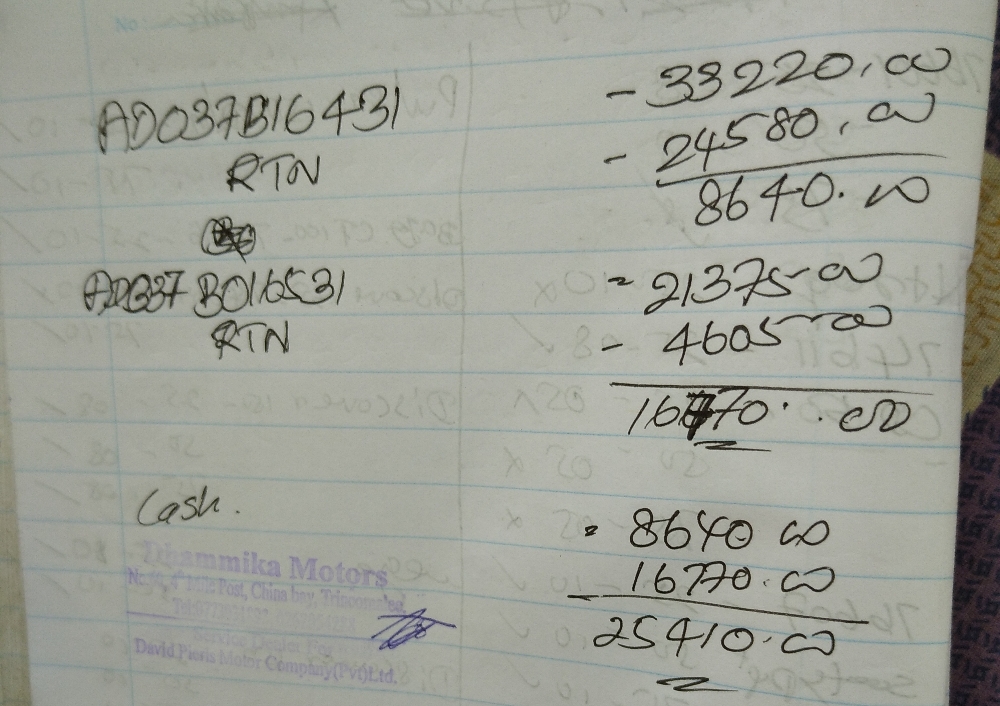 AD037B16431 - 33220.00
RTN - 24580.00
8640.00
AD037 B016531 = 21375-00
RTN - 4605-00
16770.00
Cash. = 8640 00
16770.00
25410.00
Dhammika Motors
4th Mile Post, China bay, Trincomalee.
Service Dealer For
David Pieris Motor Company(Pvt)Ltd.